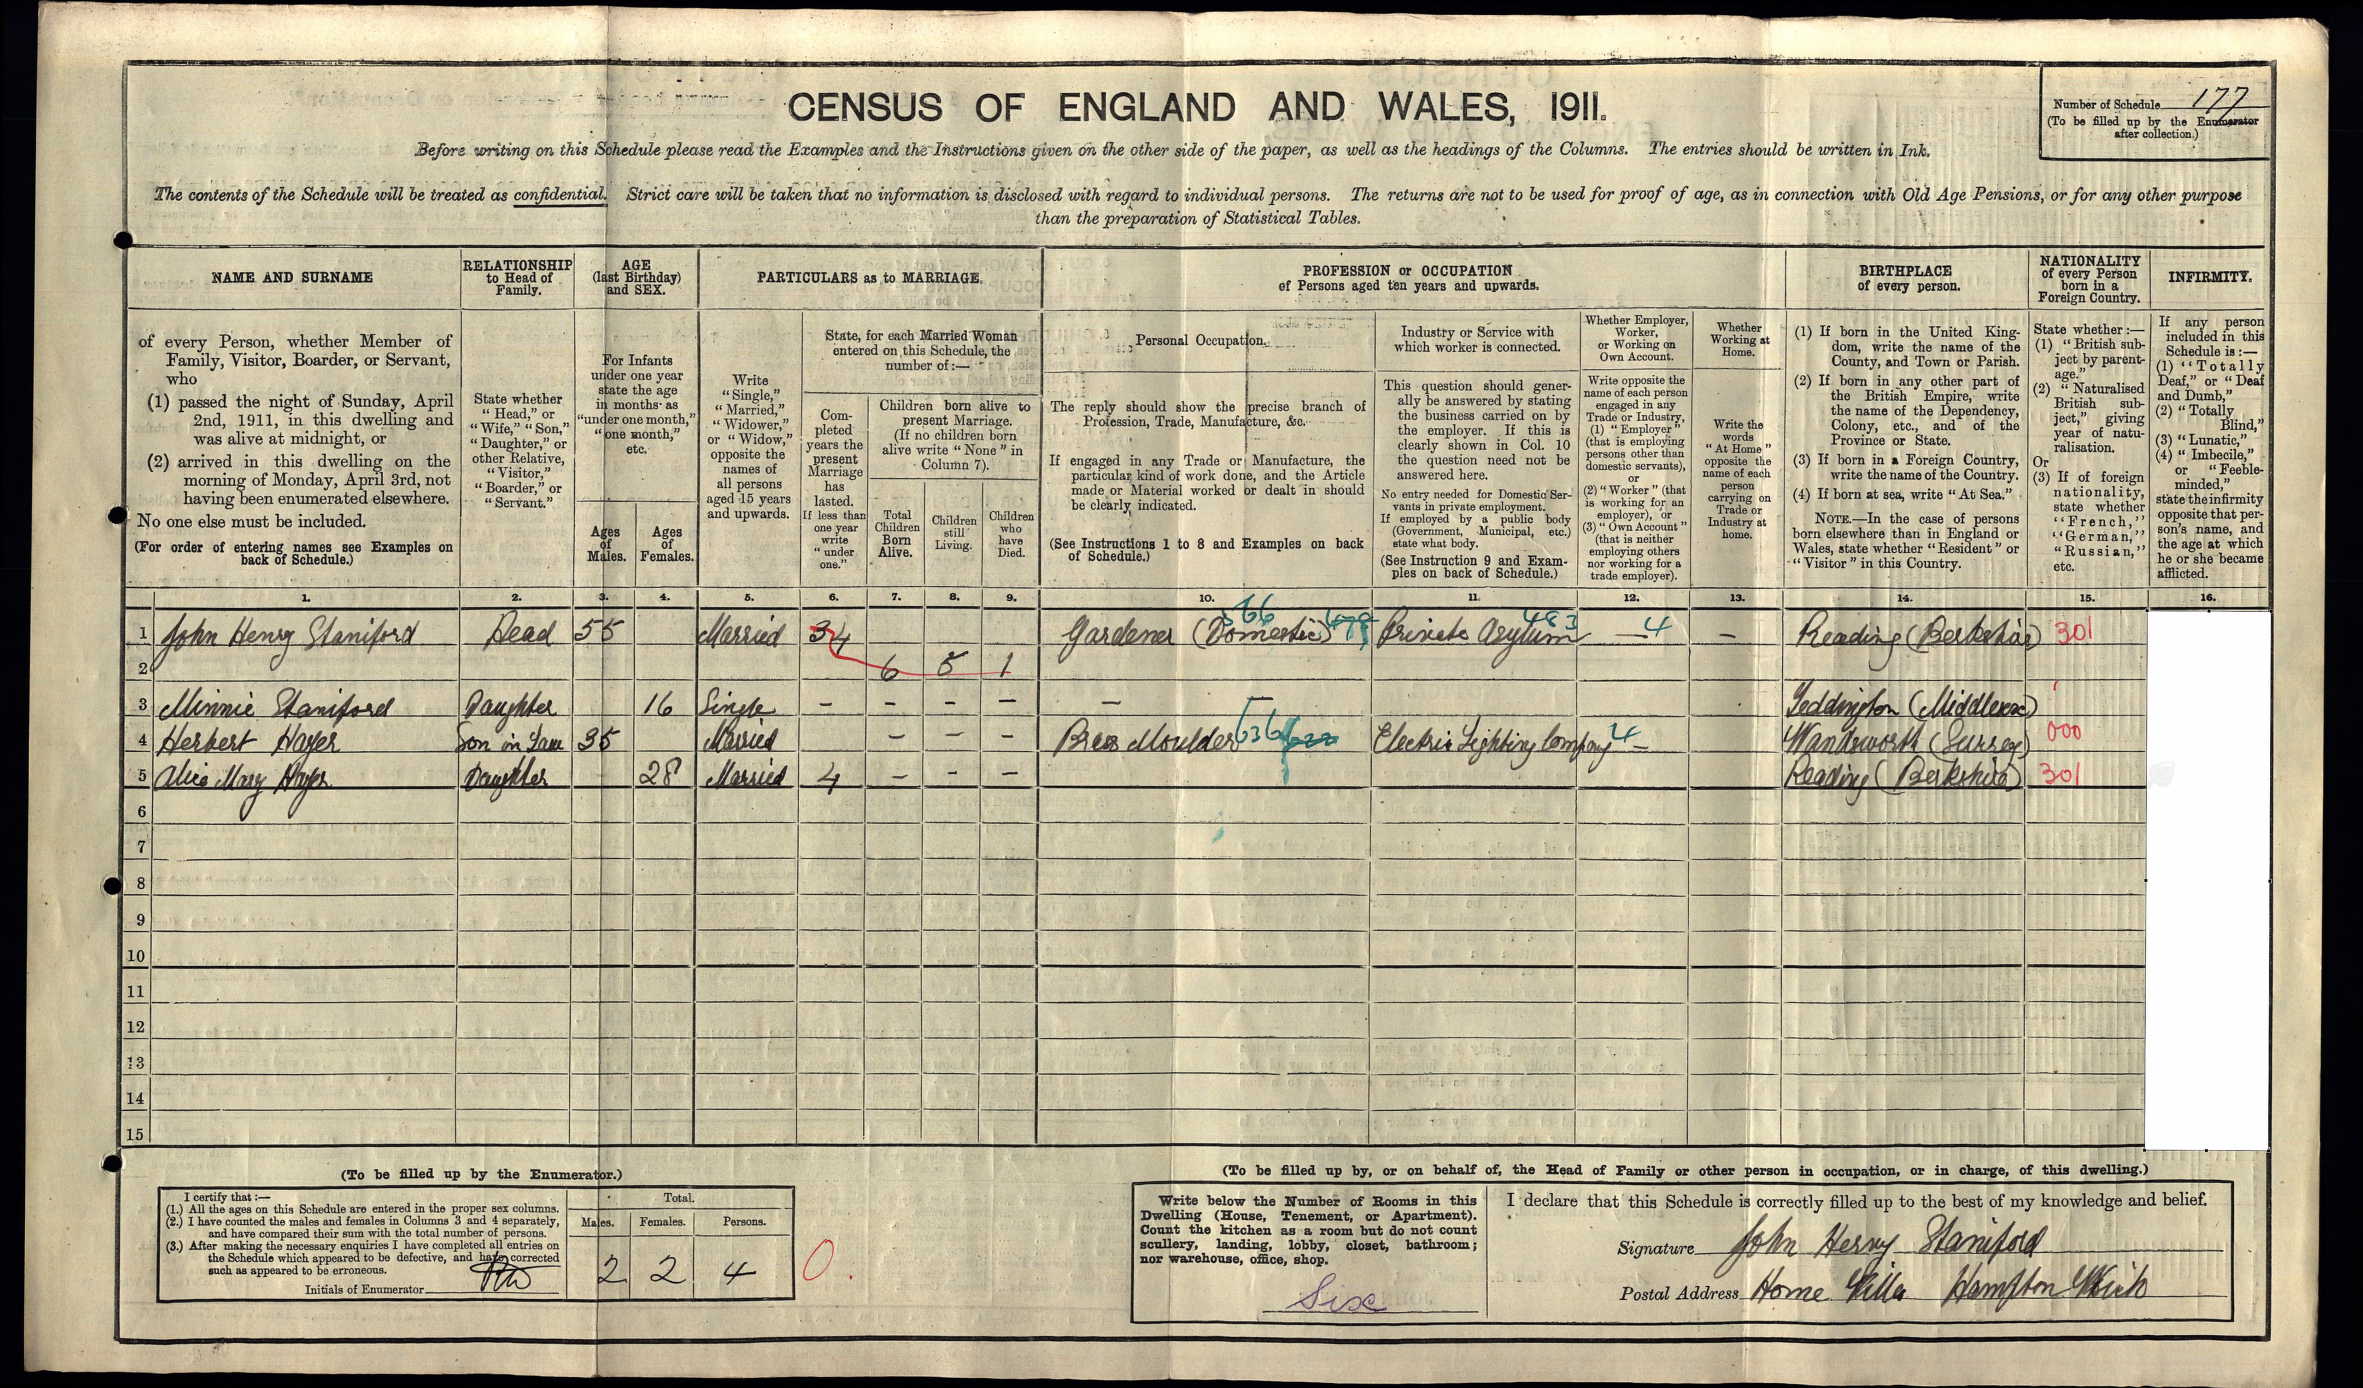 CENSUS OF ENGLAND AND WALES, 1911.
Number of Schedule 177
(To be filled up by the Enumerator
after collection.)
Before writing on this Schedule please read the Examples and the Instructions given on the other side of the paper, as well as the headings of the Columns. The entries should be written in Ink.
The contents of the Schedule will be treated as confidential. Strict care will be taken that no information is disclosed with regard to individual persons. The returns are not to be used for proof of age, as in connection with Old Age Pensions, or for any other purpose
than the preparation of Statistical Tables.
NAME AND SURNAME
of every Person, whether Member of
Family, Visitor, Boarder, or Servant,
who
(1) passed the night of Sunday, April
2nd, 1911, in this dwelling and
was alive at midnight, or
(2) arrived in this dwelling on the
morning of Monday, April 3rd, not
having been enumerated elsewhere.
No one else must be included.
(For order of entering names see Examples on
back of Schedule.)
RELATIONSHIP
to Head of
Family.
State whether
"Head," or
"Wife," "Son,"
"Daughter," or
other Relative,
"Visitor,"
"Boarder," or
"Servant."
AGE
(last Birthday)
and SEX.
For Infants
under one year
state the age
in months as
"under one month,"
"one month,"
etc.
Ages
of
Males.
Ages
of
Females.
PARTICULARS as to MARRIAGE.
Write
"Single,"
"Married,"
"Widower,"
or "Widow,"
opposite the
names of
all persons
aged 15 years
and upwards.
State, for each Married Woman
entered on this Schedule, the
number of:—
Com-
pleted
years the
present
Marriage
has
lasted.
If less than
one year
write
"under
one."
Children born alive to
present Marriage.
(If no children born
alive write "None" in
Column 7).
Total
Children
Born
Alive.
Children
still
Living.
Children
who
have
Died.
PROFESSION or OCCUPATION
of Persons aged ten years and upwards.
Personal Occupation.
The reply should show the precise branch of
Profession, Trade, Manufacture, &c.
If engaged in any Trade or Manufacture, the
particular kind of work done, and the Article
made or Material worked or dealt in should
be clearly indicated.
(See Instructions 1 to 8 and Examples on back
of Schedule.)
Industry or Service with
which worker is connected.
This question should gener-
ally be answered by stating
the business carried on by
the employer. If this is
clearly shown in Col. 10
the question need not be
answered here.
No entry needed for Domestic Ser-
vants in private employment.
If employed by a public body
(Government, Municipal, etc.)
state what body.
(See Instruction 9 and Exam-
ples on back of Schedule.)
Whether Employer,
Worker,
or Working on
Own Account.
Write opposite the
name of each person
engaged in any
Trade or Industry,
(1) "Employer"
(that is employing
persons other than
domestic servants),
or
(2) "Worker" (that
is working for an
employer), or
(3) "Own Account"
(that is neither
employing others
nor working for a
trade employer).
Whether
Working at
Home.
Write the
words
"At Home"
opposite the
name of each
person
carrying on
Trade or
Industry at
home.
BIRTHPLACE
of every person.
(1) If born in the United King-
dom, write the name of the
County, and Town or Parish.
(2) If born in any other part of
the British Empire, write
the name of the Dependency,
Colony, etc., and of the
Province or State.
(3) If born in a Foreign Country,
write the name of the Country.
(4) If born at sea, write "At Sea."
NOTE.—In the case of persons
born elsewhere than in England or
Wales, state whether "Resident" or
"Visitor" in this Country.
NATIONALITY
of every Person
born in a
Foreign Country.
State whether:—
(1) "British sub-
ject by parent-
age."
(2) "Naturalised
British sub-
ject," giving
year of natu-
ralisation.
Or
(3) If of foreign
nationality,
state whether
"French,"
"German,"
"Russian,"
etc.
INFIRMITY.
If any person
included in this
Schedule is:—
(1) "Totally
Deaf," or "Deaf
and Dumb,"
(2) "Totally
Blind,"
(3) "Lunatic,"
(4) "Imbecile,"
or "Feeble-
minded,"
state the infirmity
opposite that per-
son's name, and
the age at which
he or she became
afflicted.
1. 2. 3. 4. 5. 6. 7. 8. 9. 10. 11. 12. 13. 14. 15. 16.
1 John Henry Staniford Head 55 Married 34 Gardener (Domestic) 366 Private Asylum 483 — 4 — Reading (Berkshire) 301
2 6 5 1
3 Minnie Staniford Daughter 16 Single – – – – – Teddington (Middlesex)
4 Herbert Hayer Son in Law 35 Married – – – Brass Moulder 636 Electric Lighting Company 4 – Wandsworth (Surrey) 000
5 Alice Mary Hayer Daughter 28 Married 4 – – – Reading (Berkshire) 301
6
7
8
9
10
11
12
13
14
15
(To be filled up by the Enumerator.)
I certify that:—
(1.) All the ages on this Schedule are entered in the proper sex columns.
(2.) I have counted the males and females in Columns 3 and 4 separately,
and have compared their sum with the total number of persons.
(3.) After making the necessary enquiries I have completed all entries on
the Schedule which appeared to be defective, and have corrected
such as appeared to be erroneous.
Initials of Enumerator
Total.
Males. Females. Persons.
2 2 4
0.
(To be filled up by, or on behalf of, the Head of Family or other person in occupation, or in charge, of this dwelling.)
Write below the Number of Rooms in this
Dwelling (House, Tenement, or Apartment).
Count the kitchen as a room but do not count
scullery, landing, lobby, closet, bathroom;
nor warehouse, office, shop.
Six
I declare that this Schedule is correctly filled up to the best of my knowledge and belief.
Signature John Henry Staniford
Postal Address Home Villa Hampton Wick